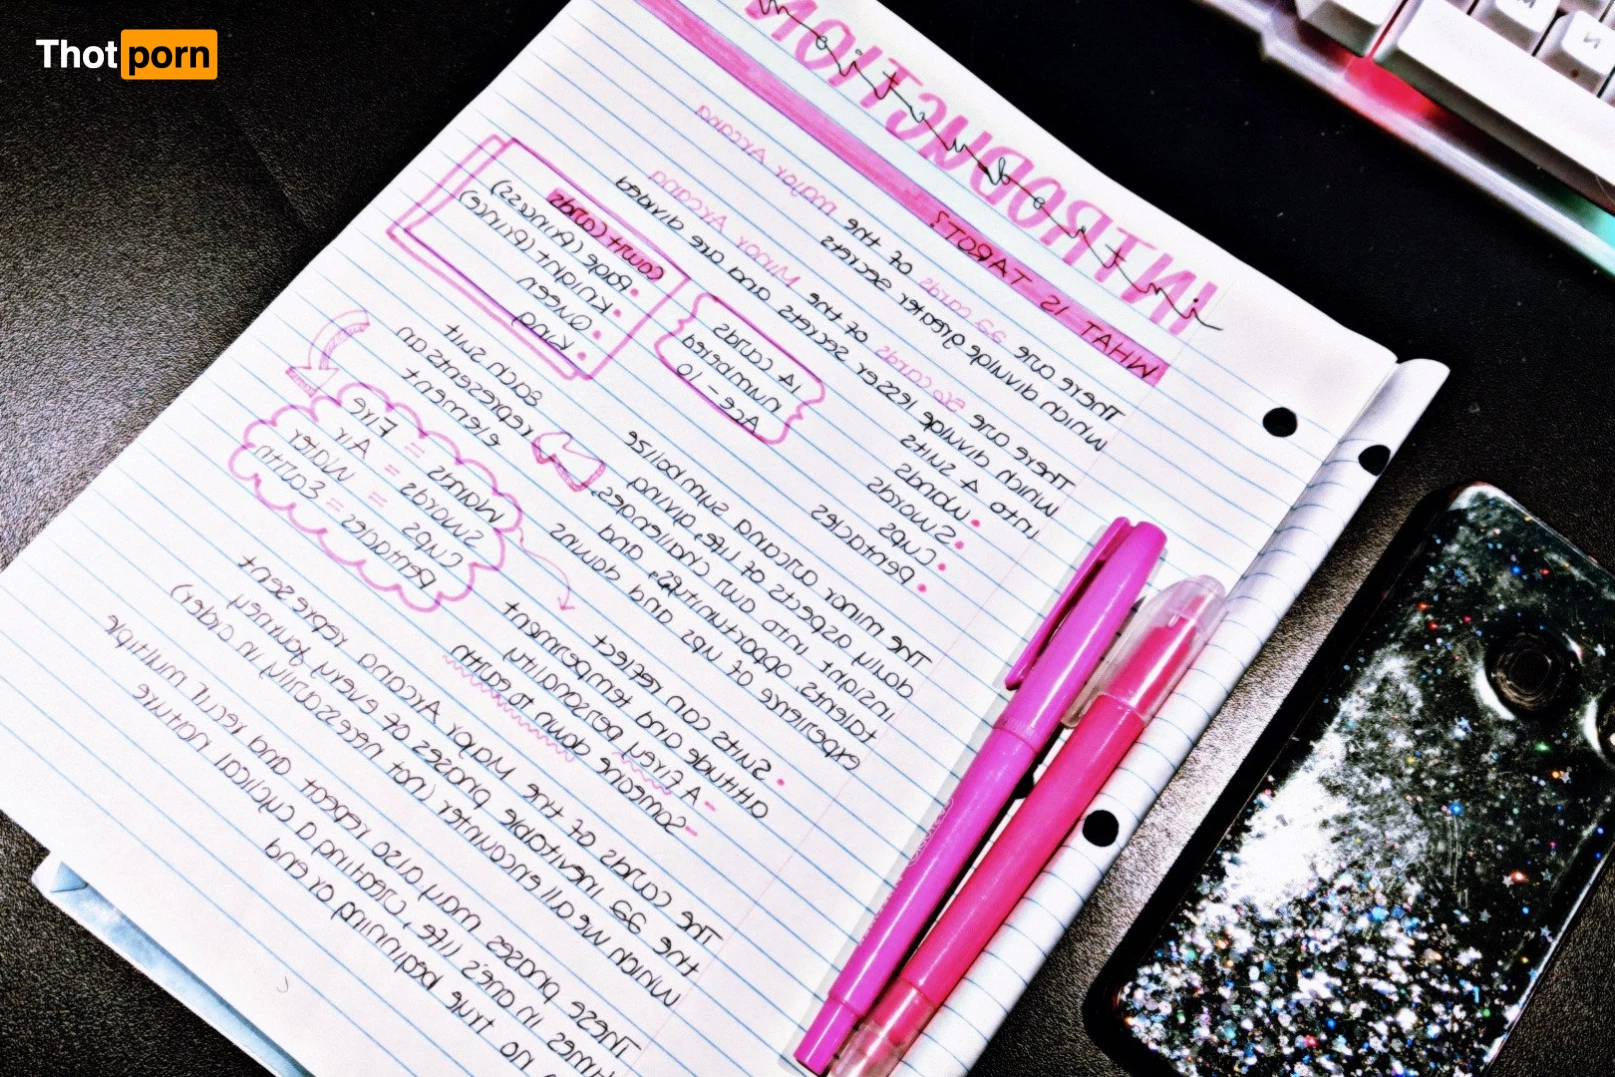 Thot porn
INTRODUCTION
introduction
WHAT IS TAROT?
There are 22 cards of the major Arcana
which divulge greater secrets
There are 56 cards of the Minor Arcana
which divulge lesser secrets and are divided
into 4 suits
• Wands
• Swords
• Cups
• pentacles
14 cards
numbered
Ace - 10
court cards
• Page (princess)
• Knight (prince)
• Queen
• King
The minor arcana symbolize
daily aspects of life, giving
insight into our challenges,
talents, opportunitys, and
experience of ups and downs
each suit
represents an
element
Wands = Fire
Swords = Air
Cups = Water
pentacles = Earth
• Suits can reflect
attitude and temperment
- A firey personality
- Someone down to earth
The cards of the Major Arcana represent
the 22 inevitable phases of every journey
which we all encounter (not necessarily in order)
These phases may also repeat and recur multiple
times in one's life, creating a cyclical nature
no true beginning or end